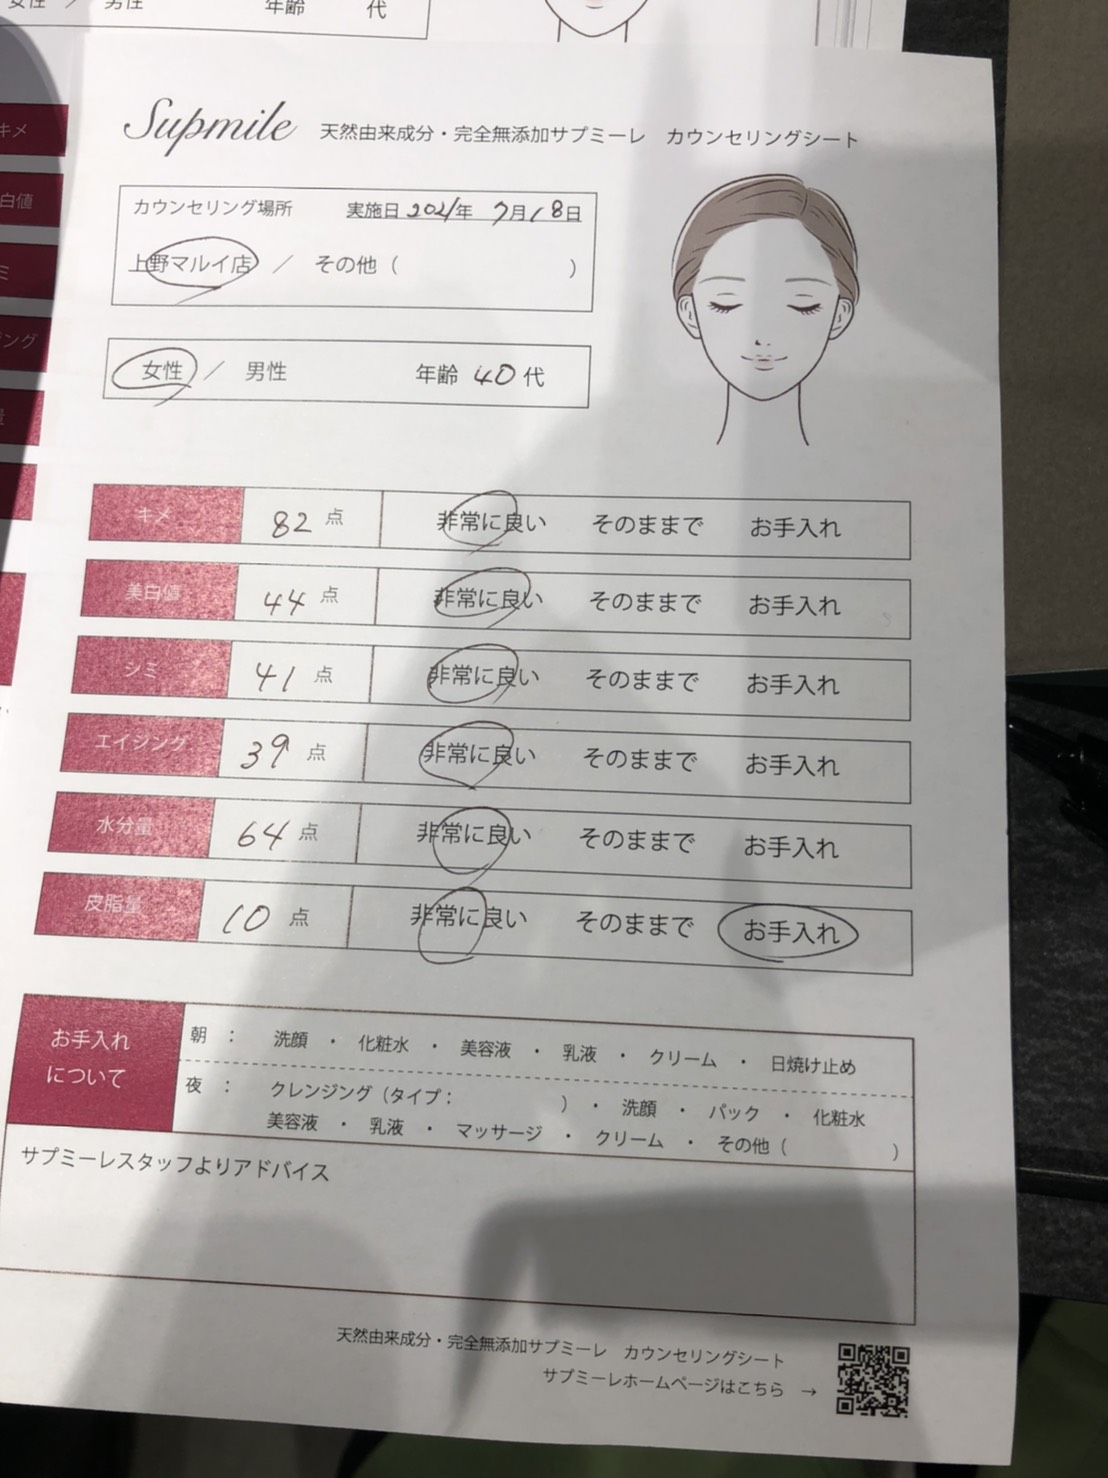 女性 / 男性 年齢 代
キメ
白値
ミ
ング
量
Supmile 天然由来成分・完全無添加サプミーレ カウンセリングシート
カウンセリング場所 実施日 2021年 7月18日
上野マルイ店 / その他 ( )
女性 / 男性 年齢 40代
キメ 82点 非常に良い そのままで お手入れ
美白値 44点 非常に良い そのままで お手入れ
シミ 41点 非常に良い そのままで お手入れ
エイジング 39点 非常に良い そのままで お手入れ
水分量 64点 非常に良い そのままで お手入れ
皮脂量 10点 非常に良い そのままで お手入れ
お手入れ
について
朝 : 洗顔 ・ 化粧水 ・ 美容液 ・ 乳液 ・ クリーム ・ 日焼け止め
夜 : クレンジング (タイプ: ) ・ 洗顔 ・ パック ・ 化粧水
美容液 ・ 乳液 ・ マッサージ ・ クリーム ・ その他 ( )
サプミーレスタッフよりアドバイス
天然由来成分・完全無添加サプミーレ カウンセリングシート
サプミーレホームページはこちら →